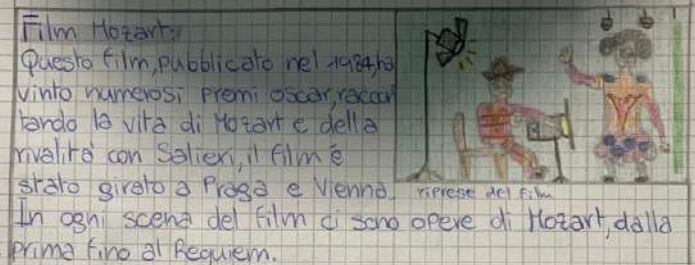 Film Mozart:
Questo film, pubblicato nel 1984, ha
vinto numerosi premi oscar, raccon
tando la vita di Mozart e della
rivalità con Salieri, il film è
stato girato a Praga e Vienna.
riprese del film
In ogni scena del film ci sono opere di Mozart, dalla
prima fino al Requiem.